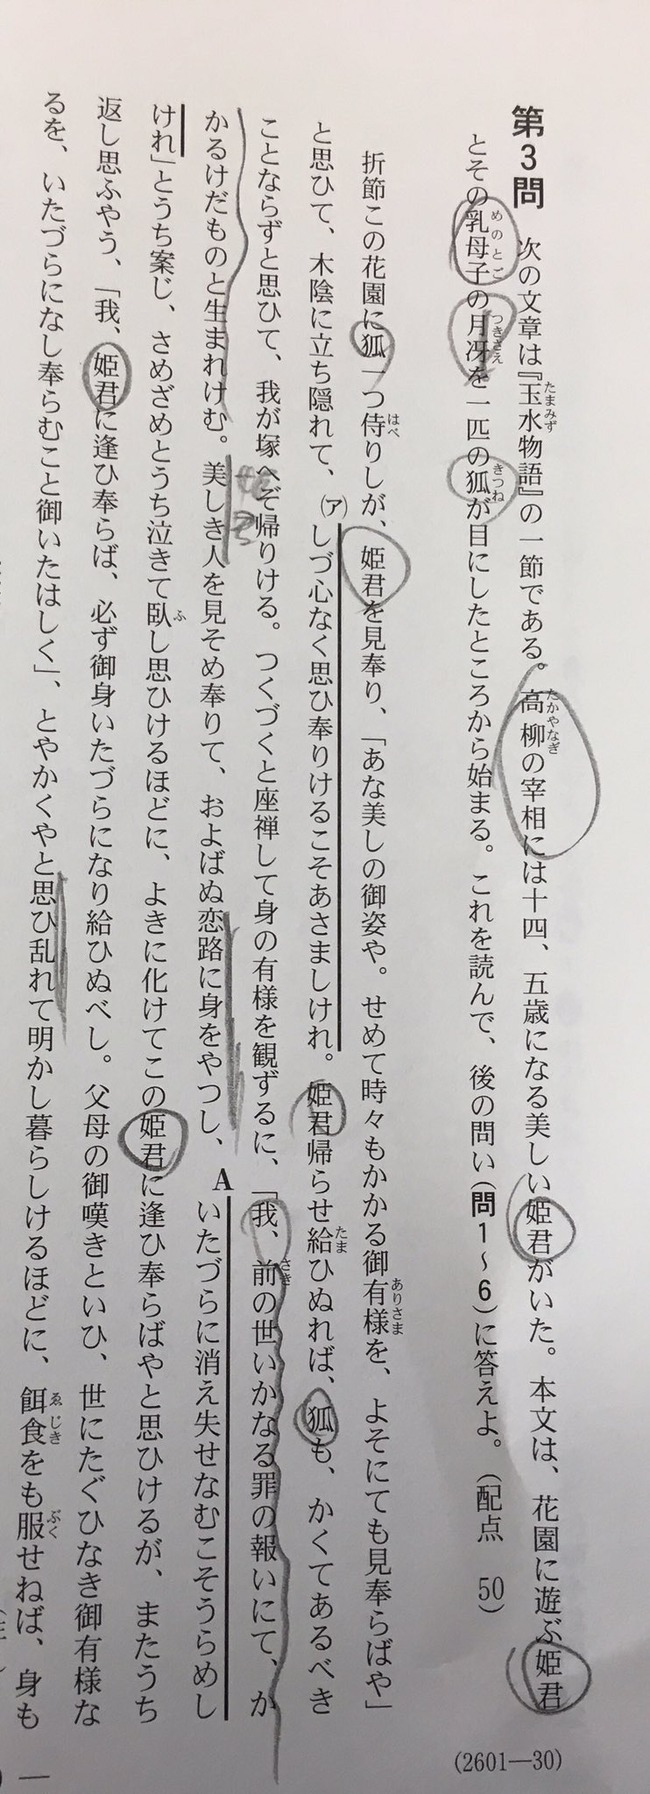 第3問 次の文章は『玉水物語』の一節である。高柳の宰相には十四、五歳になる美しい姫君がいた。本文は、花園に遊ぶ姫君
とその乳母子の月冴を一匹の狐が目にしたところから始まる。これを読んで、後の問い(問1〜6)に答えよ。(配点 50)
折節この花園に狐一つ侍りしが、姫君を見奉り、「あな美しの御姿や。せめて時々もかかる御有様を、よそにても見奉らばや」
と思ひて、木陰に立ち隠れて、(ア)しづ心なく思ひ奉りけるこそあさましけれ。姫君帰らせ給ひぬれば、狐も、かくてあるべき
ことならずと思ひて、我が塚へぞ帰りける。つくづくと座禅して身の有様を観ずるに、「我、前の世いかなる罪の報いにて、か
かるけだものと生まれけむ。美しき人を見そめ奉りて、およばぬ恋路に身をやつし、Aいたづらに消え失せなむこそうらめし
けれ」とうち案じ、さめざめとうち泣きて臥し思ひけるほどに、よきに化けてこの姫君に逢ひ奉らばやと思ひけるが、またうち
返し思ふやう、「我、姫君に逢ひ奉らば、必ず御身いたづらになり給ひぬべし。父母の御嘆きといひ、世にたぐひなき御有様な
るを、いたづらになし奉らむこと御いたはしく」、とやかくやと思ひ乱れて明かし暮らしけるほどに、餌食をも服せねば、身も
(2601—30)